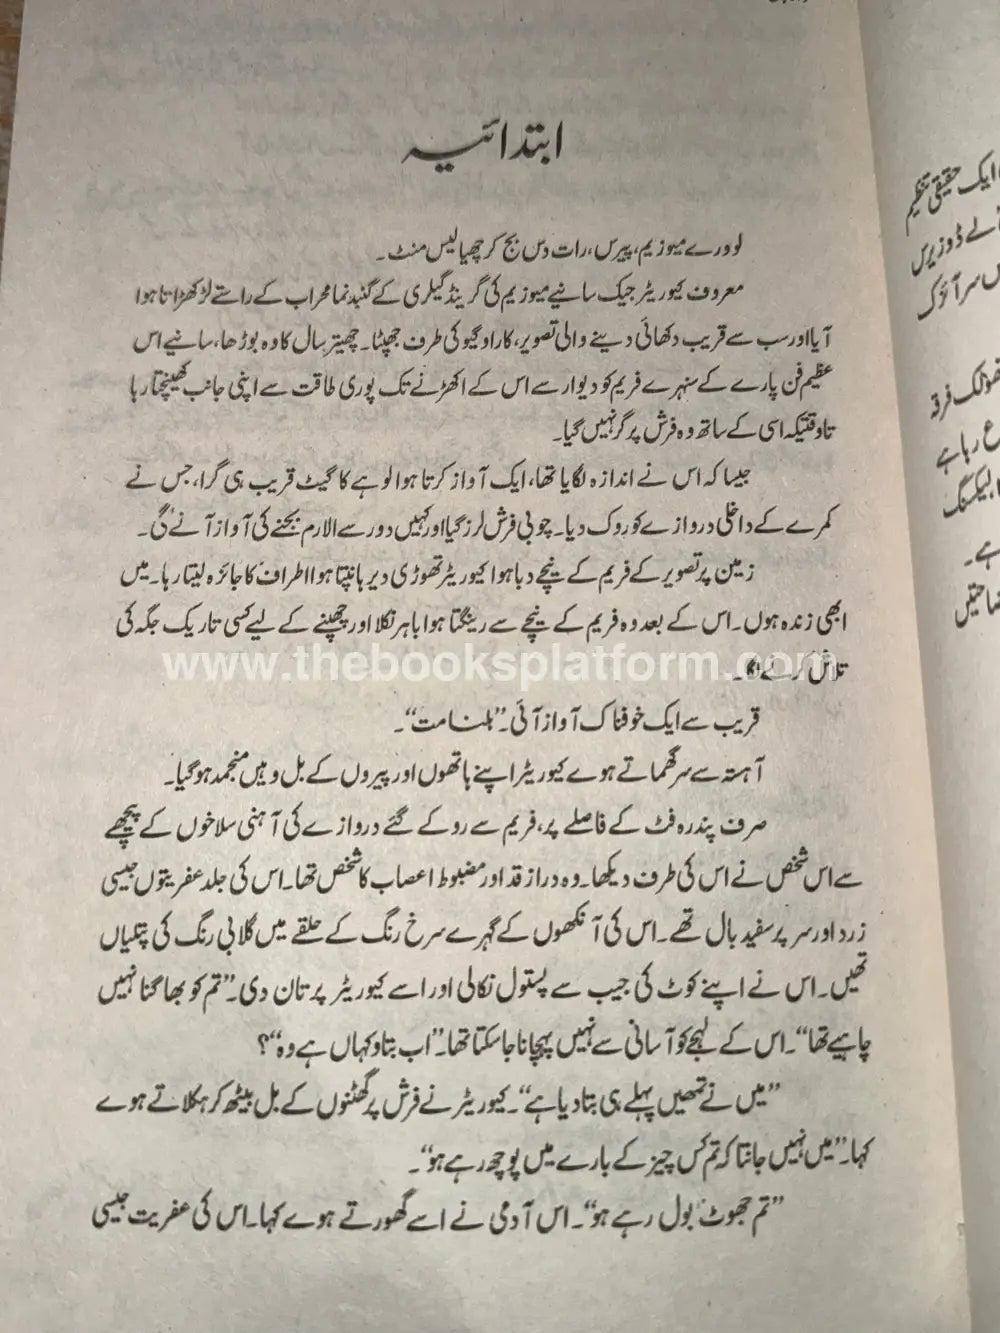 ابتدائیہ
لوورے میوزیم، پیرس، رات دس بج کر چھیالیس منٹ۔
معروف کیوریٹر جیک سانیے میوزیم کی گرینڈ گیلری کے گنبد نما محراب کے راستے لڑکھڑاتا ہوا
آیا اور سب سے قریب دکھائی دینے والی تصویر، کاراوگیو کی طرف جھپٹا۔ چھیتر سال کا وہ بوڑھا، سانیے اس
عظیم فن پارے کے سنہرے فریم کو دیوار سے اس کے اکھڑنے تک پوری طاقت سے اپنی جانب کھینچتا رہا
تاوقتیکہ اسی کے ساتھ وہ فرش پر گر نہیں گیا۔
جیسا کہ اس نے اندازہ لگایا تھا، ایک آواز کرتا ہوا لوہے کا گیٹ قریب ہی گرا، جس نے
کمرے کے داخلی دروازے کو روک دیا۔ چوبی فرش لرز گیا اور کہیں دور سے الارم بجنے کی آواز آنے گی۔
زمین پر تصویر کے فریم کے نیچے دبا ہوا کیوریٹر تھوڑی دیر ہانپتا ہوا اطراف کا جائزہ لیتا رہا۔ میں
ابھی زندہ ہوں۔ اس کے بعد وہ فریم کے نیچے سے رینگتا ہوا باہر نکلا اور چھپنے کے لیے کسی تاریک جگہ کی
www.thebooksplatform.com
تلاش کرنے لگا۔
قریب سے ایک خوفناک آواز آئی۔ ”ہلنا مت“۔
آہستہ سے سر گھماتے ہوے کیوریٹر اپنے ہاتھوں اور پیروں کے بل وہیں منجمد ہو گیا۔
صرف پندرہ فٹ کے فاصلے پر، فریم سے روکے گئے دروازے کی آہنی سلاخوں کے پیچھے
سے اس شخص نے اس کی طرف دیکھا۔ وہ دراز قد اور مضبوط اعصاب کا شخص تھا۔ اس کی جلد عفریتوں جیسی
زرد اور سر پر سفید بال تھے۔ اس کی آنکھوں کے گہرے سرخ رنگ کے حلقے میں گلابی رنگ کی پتلیاں
تھیں۔ اس نے اپنے کوٹ کی جیب سے پستول نکالی اور اسے کیوریٹر پر تان دی۔ ”تم کو بھاگنا نہیں
چاہیے تھا“۔ اس کے لہجے کو آسانی سے نہیں پہچانا جا سکتا تھا۔ ”اب بتاو کہاں ہے وہ“؟
”میں نے تمھیں پہلے ہی بتا دیا ہے“۔ کیوریٹر نے فرش پر گھٹنوں کے بل بیٹھ کر ہکلاتے ہوے
کہا۔ ”میں نہیں جانتا کہ تم کس چیز کے بارے میں پوچھ رہے ہو“۔
”تم جھوٹ بول رہے ہو“۔ اس آدمی نے اسے گھورتے ہوے کہا۔ اس کی عفریت جیسی
ایک حقیقی تنظیم
لے ڈوزیرس
سر آئزک
فرقہ
رہا ہے
لیکسنگ
ہے۔